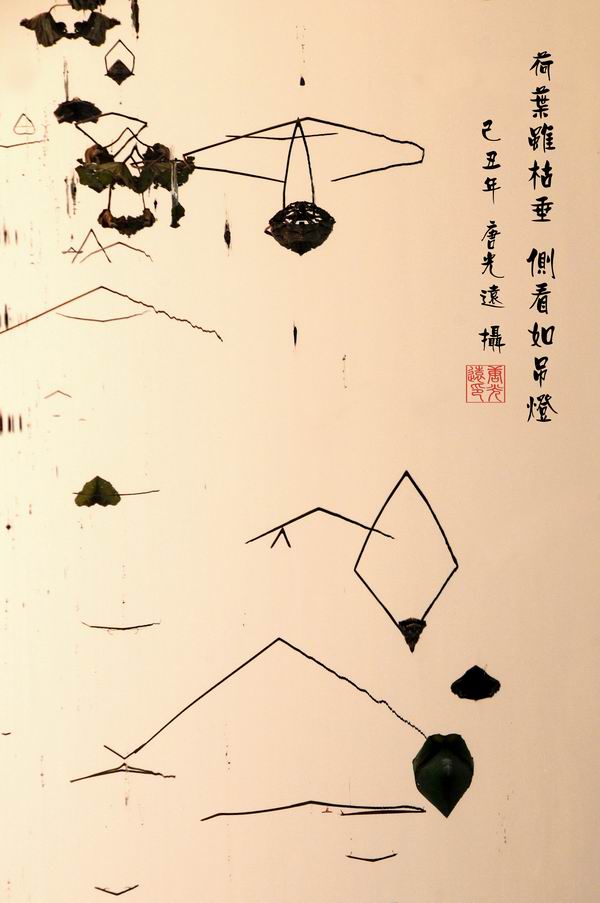 荷葉雖枯垂 側看如吊燈
己丑年 唐光遠 攝
唐光遠印